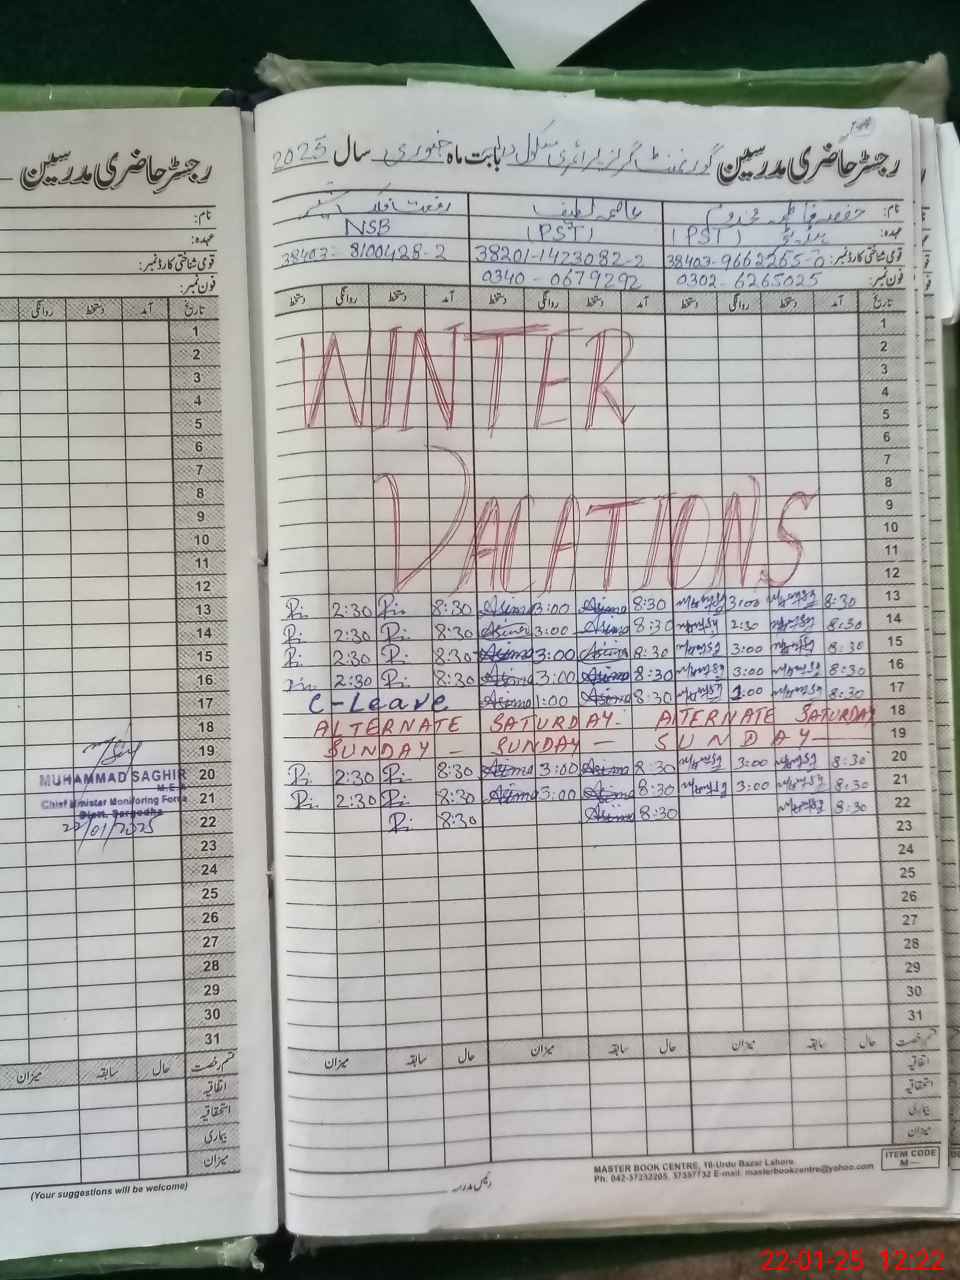 رجسٹر حاضری مدرسین گورنمنٹ گرلز پرائمری سکول بابت ماہ جنوری سال 2025
رجسٹر حاضری مدرسین
نام: حفصہ فاطمہ عاصمہ لطیف
نام:
عہدہ: (PST) (PST) NSB
عہدہ:
قومی شناختی کارڈ نمبر: 38403-9662265-0 38201-1423082-2 38403-8100428-2
قومی شناختی کارڈ نمبر:
فون نمبر: 0302-6265025 0340-0679292
فون نمبر:
تاریخ آمد دستخط روانگی دستخط آمد دستخط روانگی دستخط آمد دستخط روانگی دستخط
تاریخ آمد دستخط روانگی
1
2
3
4
5
6
7
8
9
10
11
12
WINTER
VACATIONS
2:30 8:30 Asima 3:00 Asima 8:30 3:00 8:30 13
2:30 8:30 Asima 3:00 Asima 8:30 2:30 8:30 14
2:30 8:30 Asima 3:00 Asima 8:30 3:00 8:30 15
2:30 8:30 Asima 3:00 Asima 8:30 3:00 8:30 16
C-Leave Asima 1:00 Asima 8:30 1:00 8:30 17
ALTERNATE SATURDAY- ALTERNATE SATURDAY 18
SUNDAY - SUNDAY - SUNDAY - 19
2:30 8:30 Asima 3:00 Asima 8:30 3:00 8:30 20
2:30 8:30 Asima 3:00 Asima 8:30 3:00 8:30 21
8:30 Asima 8:30 8:30 22
23
24
25
26
27
28
29
30
31
قسم رخصت حال سابقہ میزان حال سابقہ میزان حال سابقہ میزان
اتفاقیہ
استحقاقیہ
بیماری
میزان
رئیس مدرسہ
MASTER BOOK CENTRE, 18-Urdu Bazar Lahore
Ph: 042-37232205, 37357732 E-mail: masterbookcentre@yahoo.com
ITEM CODE
M—
1
2
3
4
5
6
7
8
9
10
11
12
13
14
15
16
17
18
19
20
21
22
23
24
25
26
27
28
29
30
31
MUHAMMAD SAGHIR
M.E.A
Chief Minister Monitoring Force
Distt. Sargodha
22/01/2025
قسم رخصت حال سابقہ میزان
اتفاقیہ
استحقاقیہ
بیماری
میزان
(Your suggestions will be welcome)
22-01-25 12:22